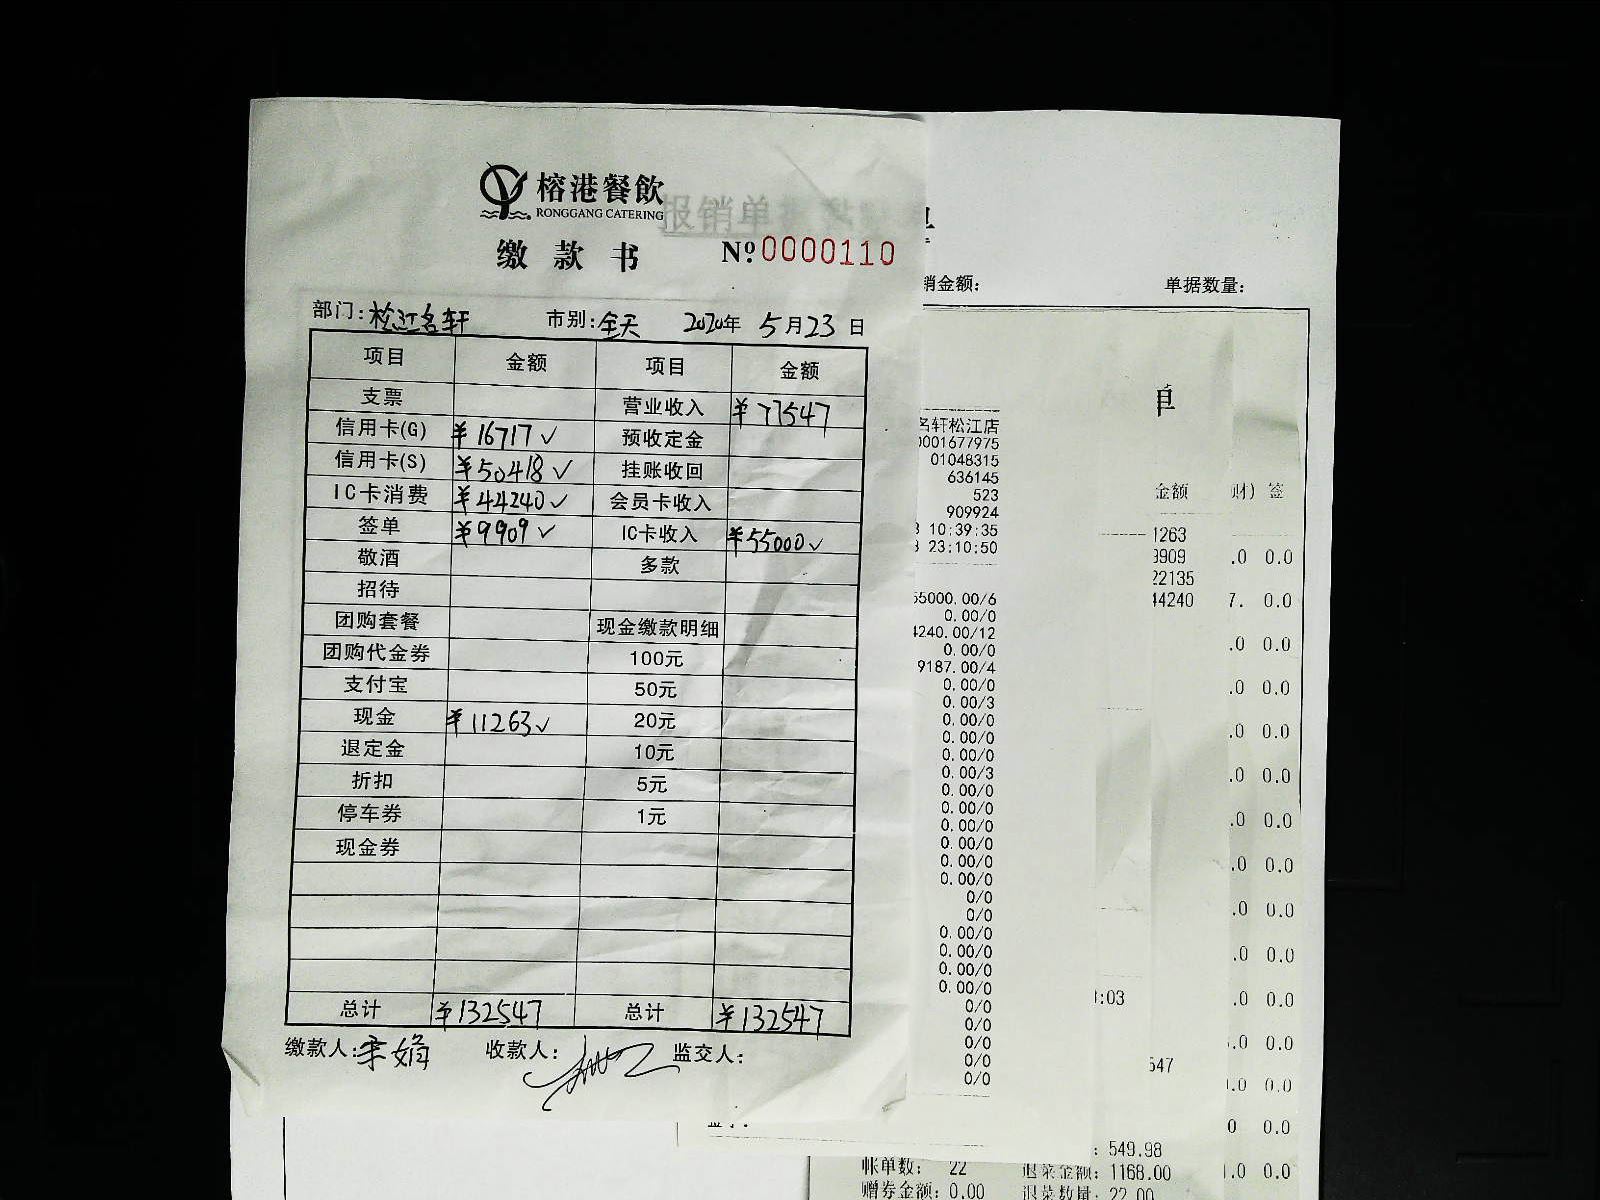 榕港餐飲
RONGGANG CATERING
报销单
缴款书 №0000110
销金额: 单据数量:
部门:松江名轩 市别:全天 2020年 5月23日
项目 金额 项目 金额
支票 营业收入 ¥77547
信用卡(G) ¥16717✓ 预收定金
信用卡(S) ¥50418✓ 挂账收回
IC卡消费 ¥44240✓ 会员卡收入
签单 ¥9909✓ IC卡收入 ¥55000✓
敬酒 多款
招待
团购套餐 现金缴款明细
团购代金券 100元
支付宝 50元
现金 ¥11263✓ 20元
退定金 10元
折扣 5元
停车券 1元
现金券
总计 ¥132547 总计 ¥132547
缴款人: 收款人: 监交人:
名轩松江店
0001677975
01048315
636145
523
909924
3 10:39:35
3 23:10:50
55000.00/6
0.00/0
4240.00/12
0.00/0
9187.00/4
0.00/0
0.00/3
0.00/0
0.00/0
0.00/0
0.00/3
0.00/0
0.00/0
0.00/0
0.00/0
0.00/0
0.00/0
0/0
0/0
0.00/0
0.00/0
0.00/0
0.00/0
0/0
0/0
0/0
0/0
0/0
单
金额
1263
9909
22135
44240
:03
547
财) 签
.0 0.0
7. 0.0
.0 0.0
.0 0.0
.0 0.0
.0 0.0
.0 0.0
.0 0.0
.0 0.0
.0 0.0
.0 0.0
.0 0.0
.0 0.0
0 0.0
.0 0.0
: 549.98
帐单数: 22 退菜金额: 1168.00
赠券金额: 0.00 退菜数量: 22.00